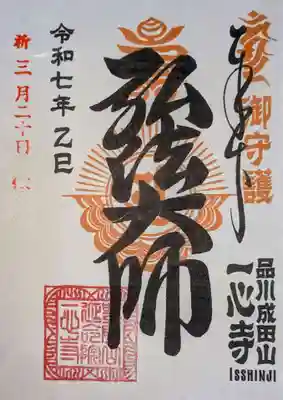 御守護
奉拝
弘法大師
品川成田山
一心寺
ISSHINJI
令和七年 乙巳
三月二十日